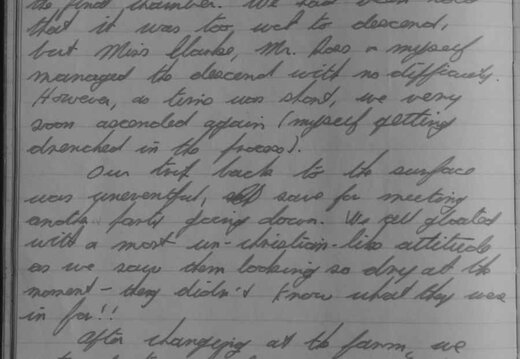 the final chamber. We had been told
that it was too wet to descend,
but Miss Clarke, Mr. Ross & myself
managed the descend with no difficulty.
However, as time was short, we very
soon ascended again (myself getting
drenched in the process).
Our trip back to the surface
was uneventful, save for meeting
another party going down. We all gloated
with a most un-christian-like attitude
as we saw them looking so dry at the
moment - they didn't know what they were
in for!!
After changing at the farm, we